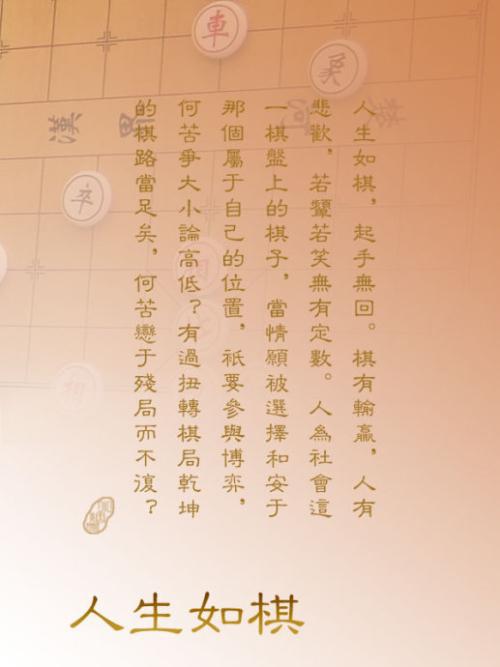 人生如棋，起手無回。棋有輸贏，人有
悲歡，若顰若笑無有定數。人為社會這
一棋盤上的棋子，當情願被選擇和安于
那個屬于自己的位置，祇要參與博弈，
何苦爭大小論高低？有過扭轉棋局乾坤
的棋路當足矣，何苦戀于殘局而不復？
人生如棋
車
象
漢界
卒
相